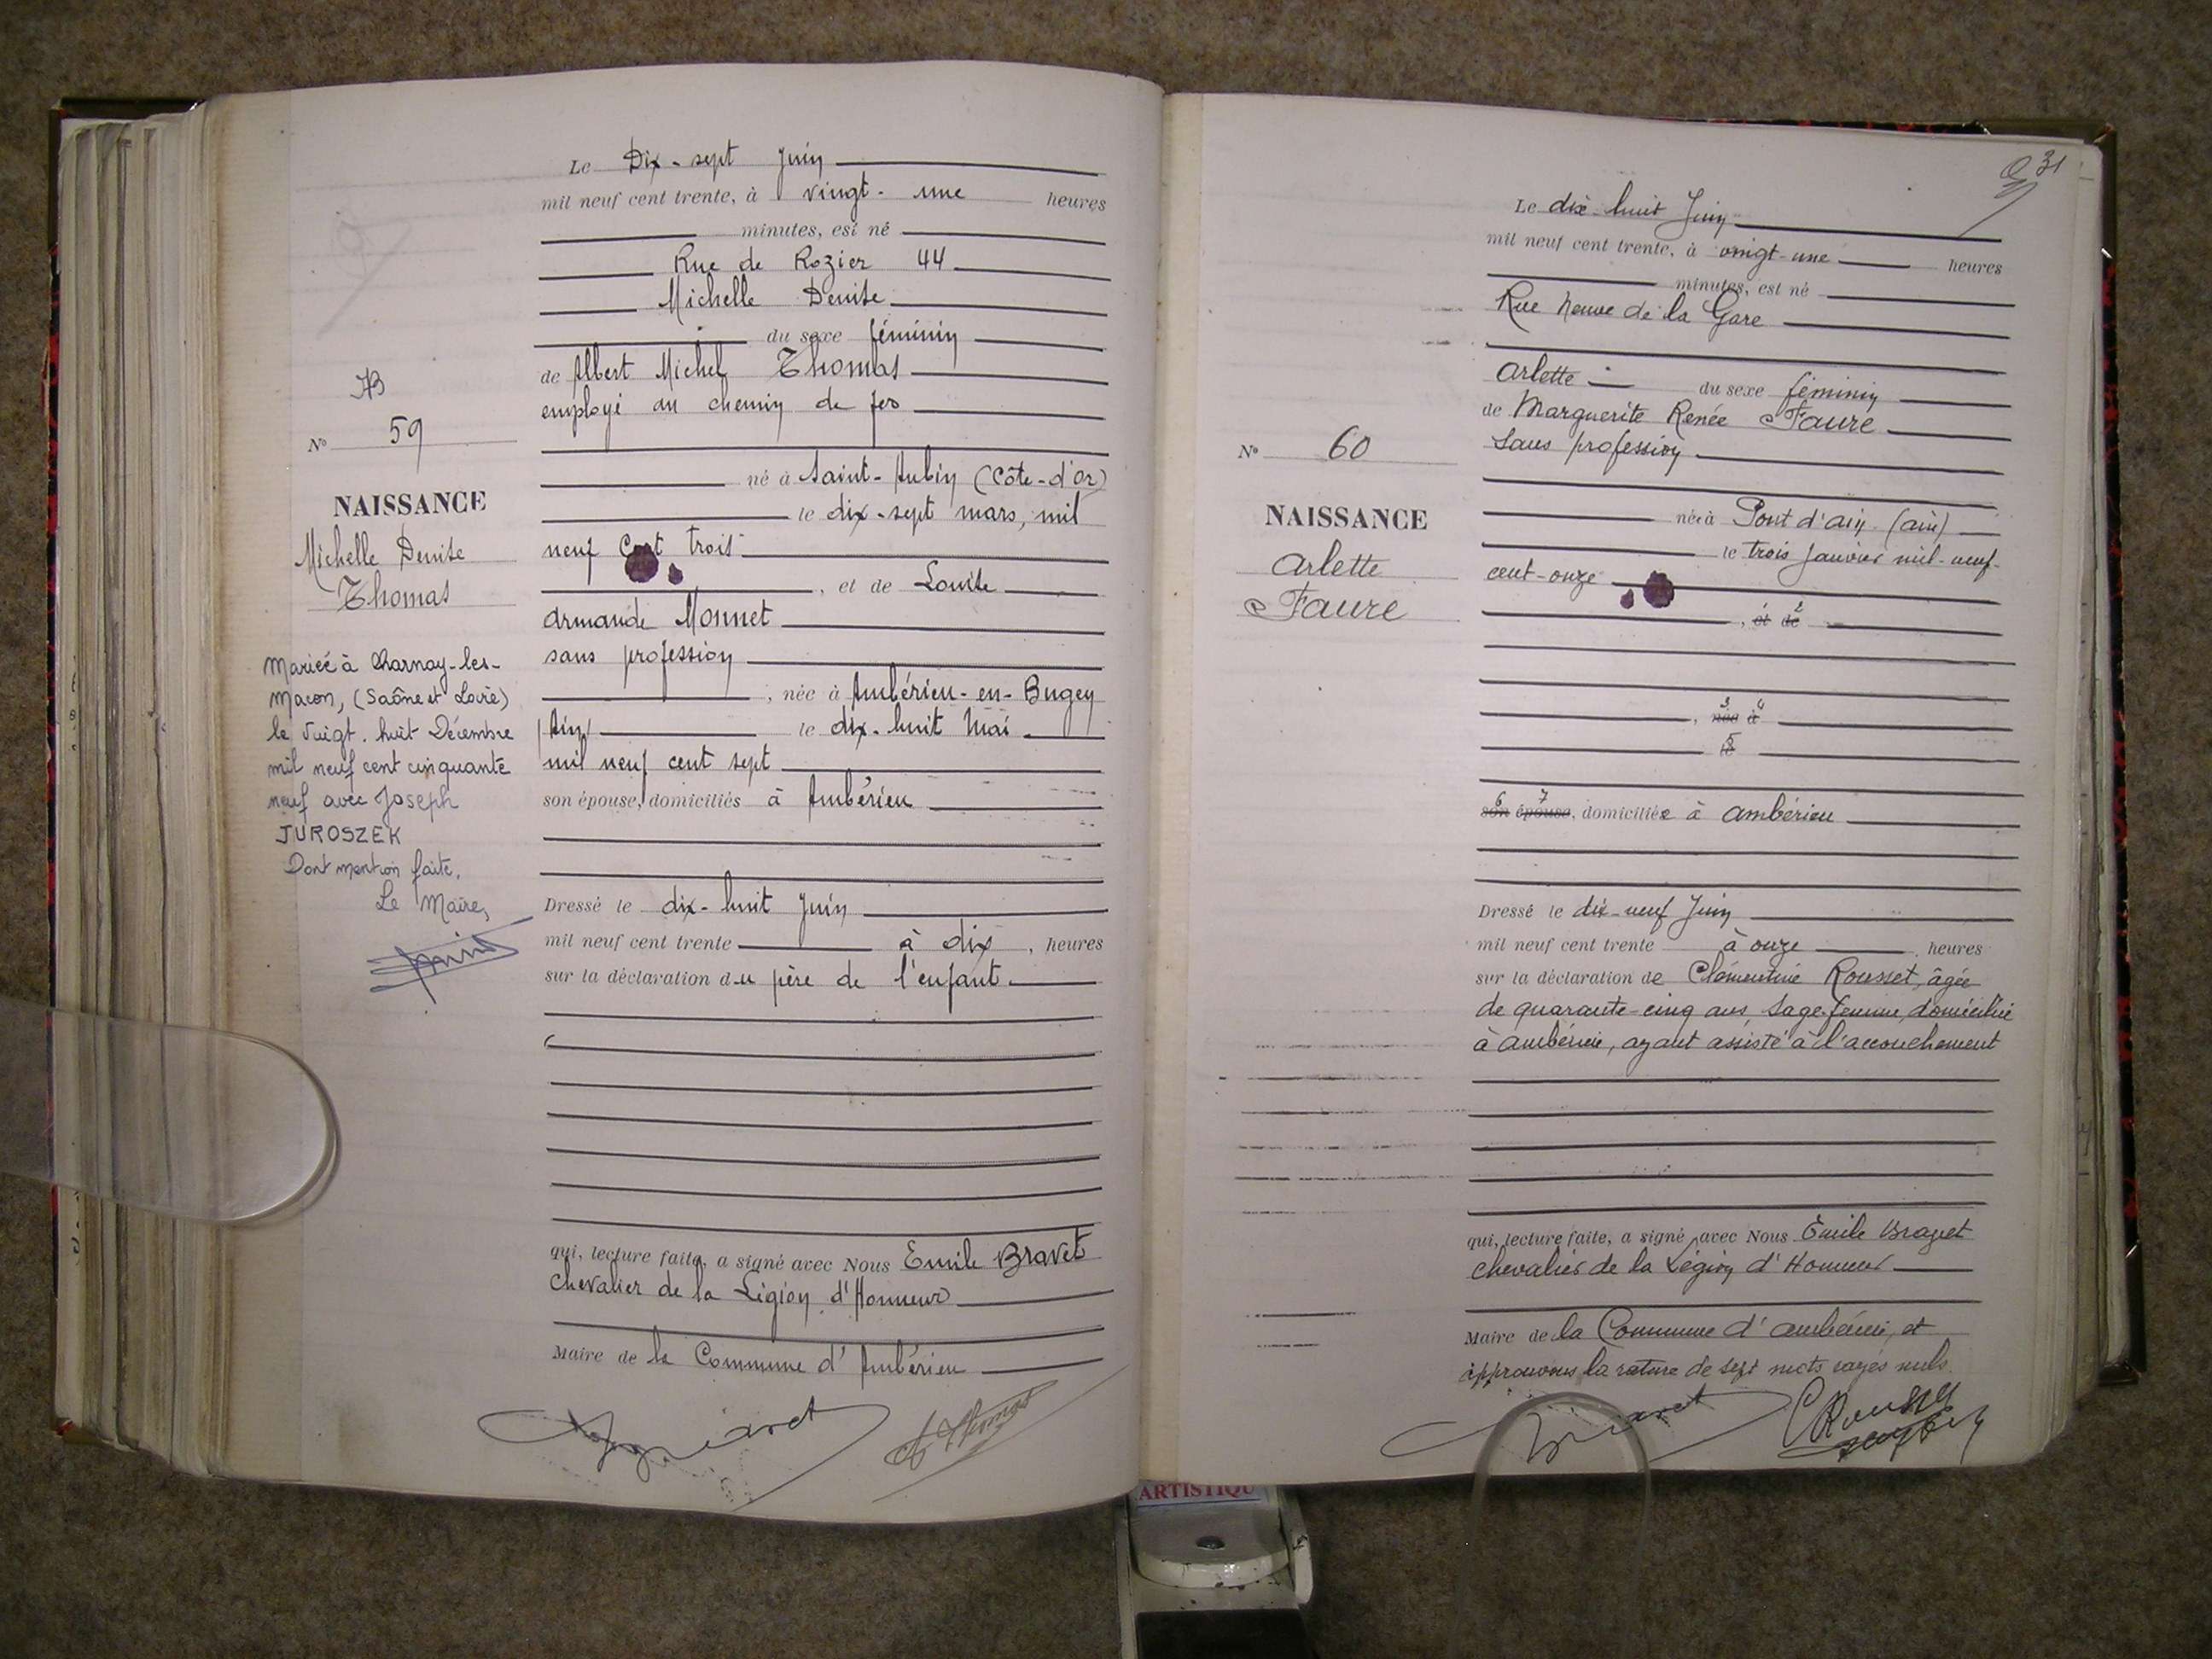 Le Dix-sept Juin
mil neuf cent trente, à vingt-une heures
minutes, est né
Rue de Rozier 44
Michelle Denise
du sexe féminin
de Albert Michel Thomas
employé au chemin de fer
né à Saint-Aubin (Côte-d'Or)
le dix-sept mars, mil
neuf cent trois
, et de Louise
Armande Monnet
sans profession
, née à Ambérieu-en-Bugey
(Ain) le dix-huit Mai
mil neuf cent sept
son épouse, domiciliés à Ambérieu
Dressé le dix-huit Juin
mil neuf cent trente à dix, heures
sur la déclaration du père de l'enfant
qui, lecture faite, a signé avec Nous Emile Bravet
Chevalier de la Légion d'Honneur
Maire de la Commune d'Ambérieu
A Thomas
N° 59
NAISSANCE
Michelle Denise
Thomas
Mariée à Charnay-les-
Macon, (Saône et Loire)
le Vingt. huit Décembre
mil neuf cent cinquante
neuf avec Joseph
JUROSZEK
Dont mention faite,
Le Maire,
31
Le dix-huit Juin
mil neuf cent trente, à vingt-une heures
minutes, est né
Rue Neuve de la Gare
Arlette du sexe féminin
de Marguerite Renée Faure
Sans profession
née à Pont d'Ain (Ain)
le trois Janvier mil-neuf-
cent-onze
, et de 2
, née à 3 4
le 5
son épouse, domiciliée à Ambérieu 6 7
Dressé le dix-neuf Juin
mil neuf cent trente à onze, heures
sur la déclaration de Clémentine Rousset, âgée
de quarante-cinq ans, Sage-femme, domiciliée
à Ambérieu, ayant assisté à l'accouchement
qui, lecture faite, a signé avec Nous Emile Bravet
Chevalier de la Légion d'Honneur
Maire de la Commune d'Ambérieu, et
approuvons la rature de sept mots rayés nuls.
N° 60
NAISSANCE
Arlette
Faure
ARTISTIQU